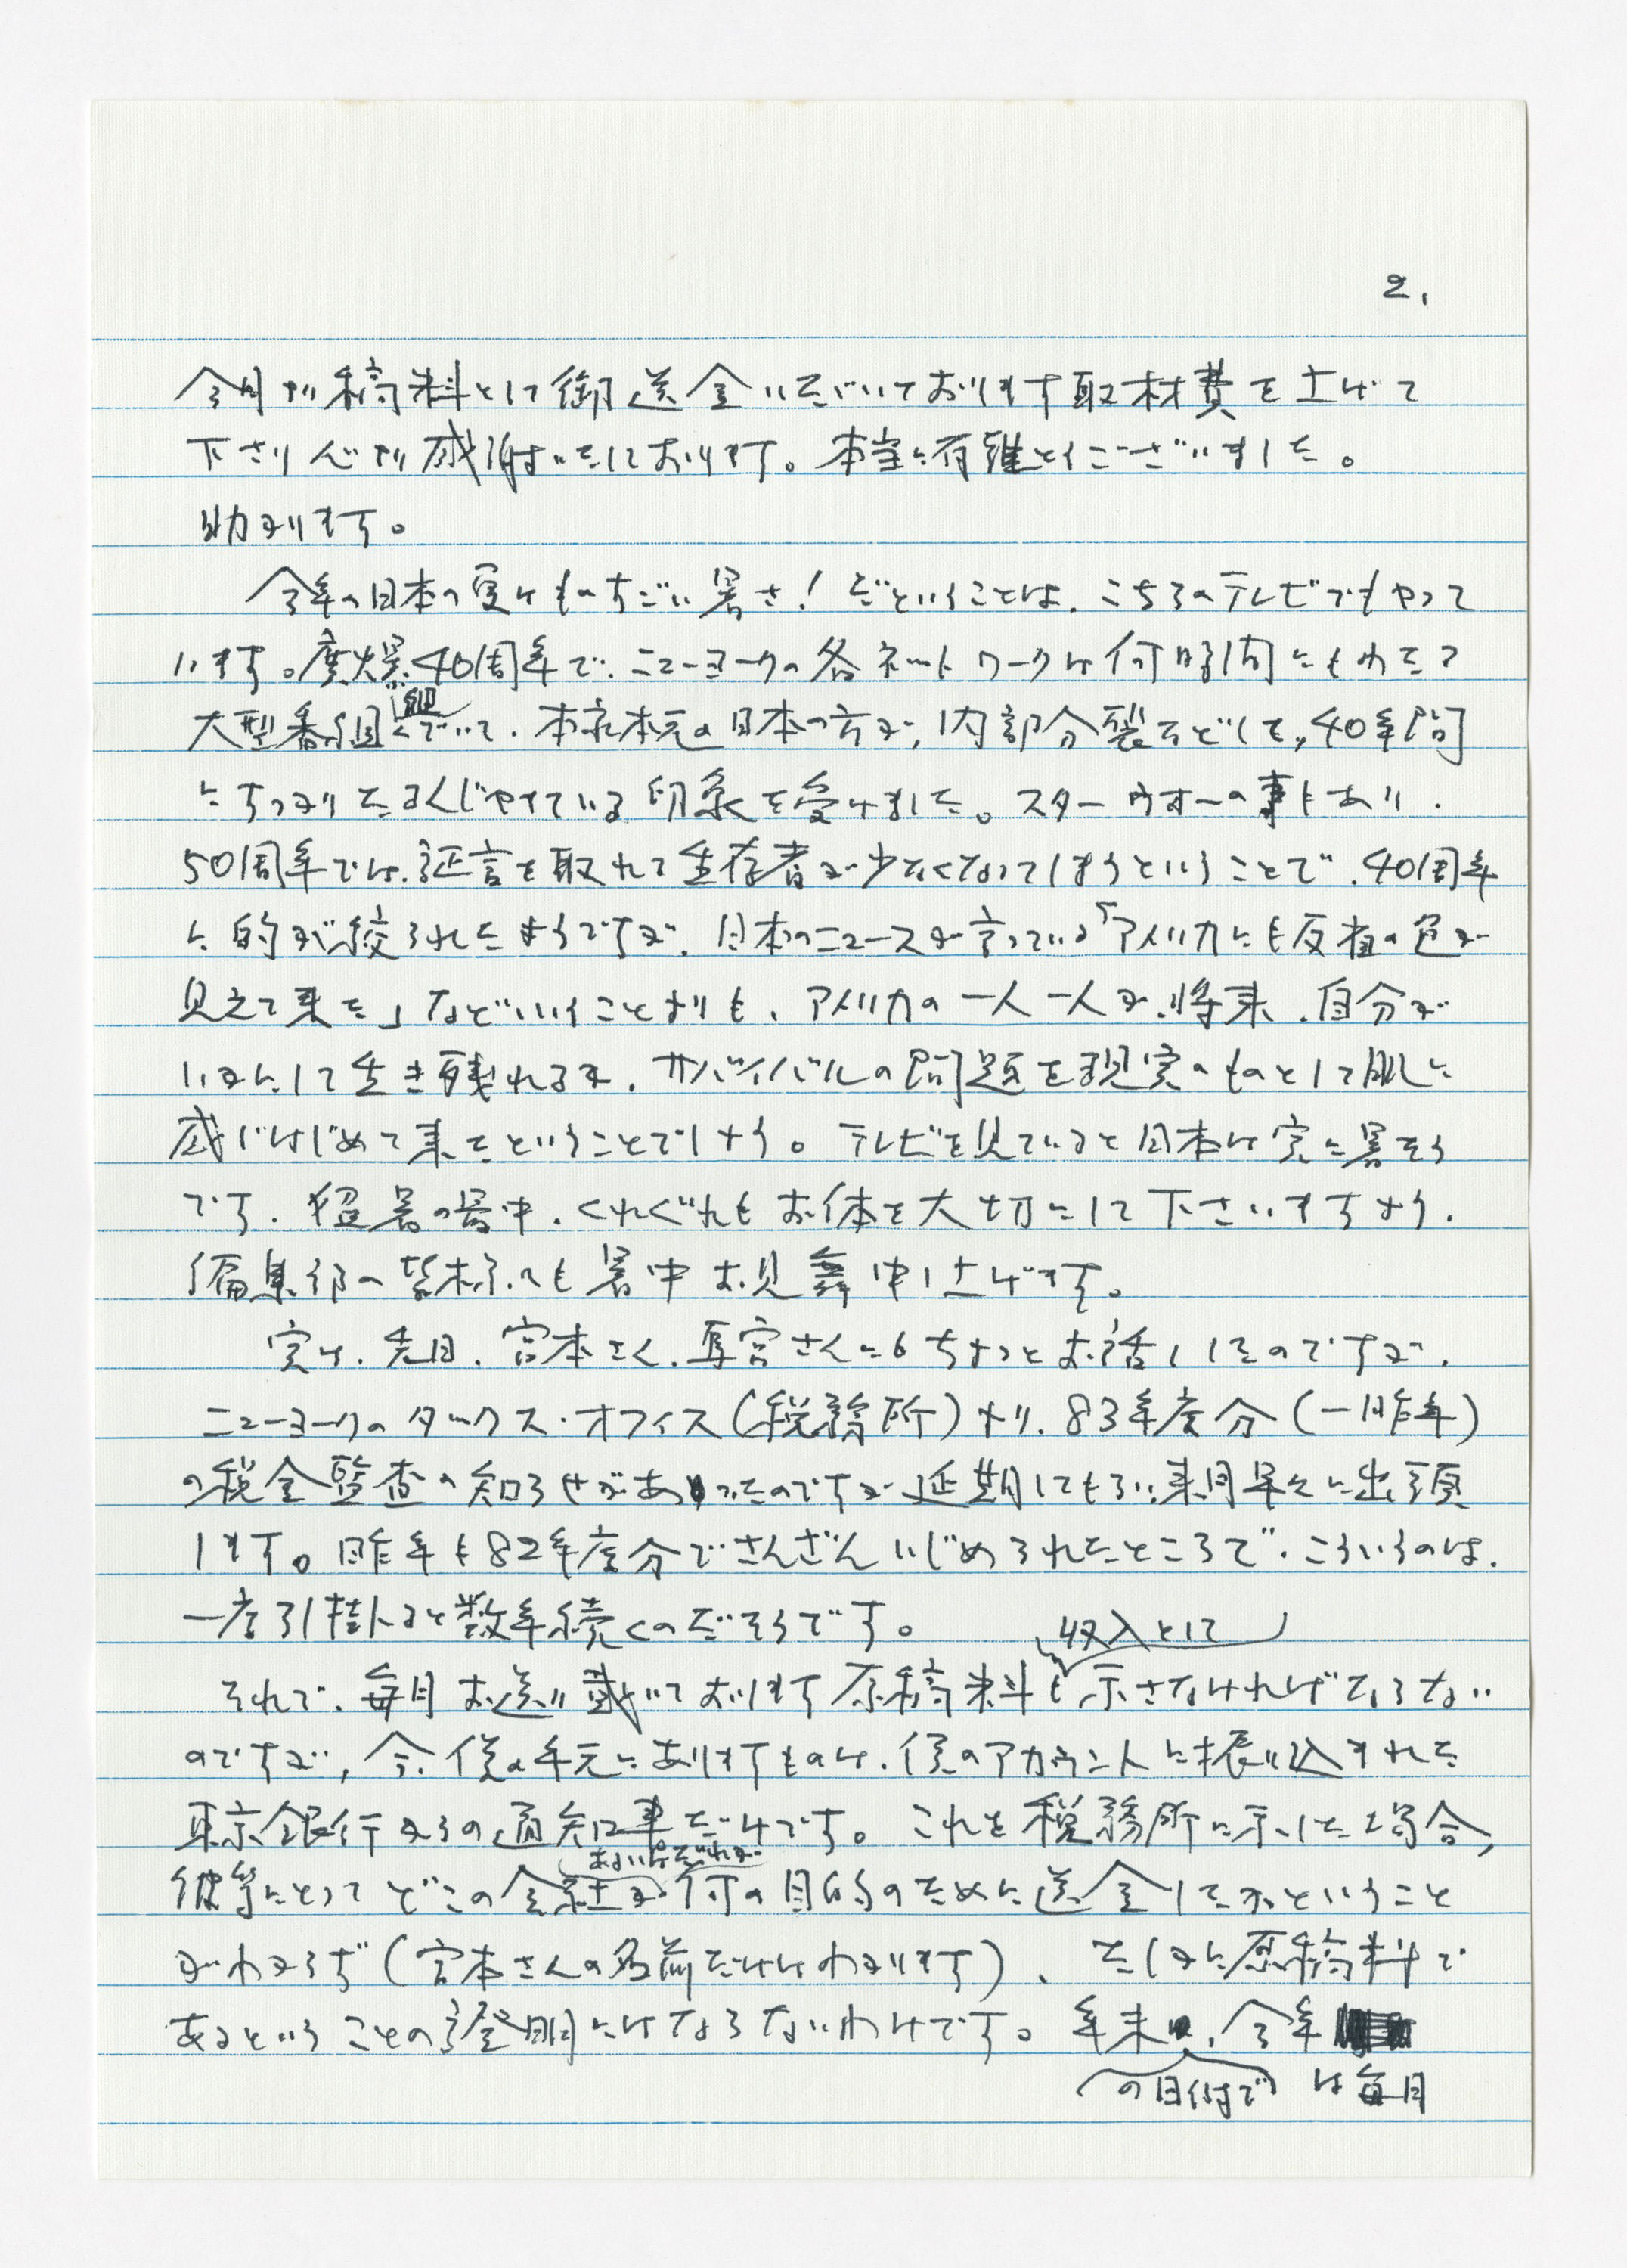 2.
今月より稿料として御送金いただいております取材費を上げて
下さり心より感謝いたしております。本当に有難とうございました。
助かります。
今年の日本の夏はものすごい暑さ！だということは、こちらのテレビでもやって
います。原爆40周年で、ニューヨークの各ネットワークは何時間にもわたる
大型番組を組んでいて、本家本元の日本の方が、内部分裂などして、40年間
にすっかりたるんじゃっている印象を受けました。スターウオーの事もあり、
50周年では、証言を取れる生存者が少なくなってしまうということで、40周年
に的が絞られたようですが、日本のニュースが言っている「アメリカにも反省の色が
見えて来た」などということよりも、アメリカの一人一人が、将来、自分が
いかにして生き残れるか、サバイバルの問題を現実のものとして肌に
感じはじめて来たということでしょう。テレビを見ていると日本は実に暑そう
です。猛暑の最中、くれぐれもお体を大切にして下さいますよう。
編集部の皆様にも暑中お見舞申し上げます。
実は、先日、宮本さん、真宮さんにもちょっとお話ししたのですが、
ニューヨークのタックス・オフィス（税務所）より、83年度分（一昨年）
の税金監査の知らせがあったのですが延期してもらい、来月早々に出頭
します。昨年も82年度分でさんざんいじめられたところで、こういうのは、
一度引掛ると数年続くのだそうです。
それで、毎月お送り戴いております原稿料も収入として示さなければならない
のですが、今、僕の手元にありますものは、僕のアカウントに振り込まれた
東京銀行からの通知書だけです。これを税務所に示した場合、
彼等にとってどこの会社があるいはだれが何の目的のために送金したかということ
がわからず（宮本さんの名前だけはわかります）、たしかに原稿料で
あるということの証明にはならないわけです。年末の日付で、今年は毎月